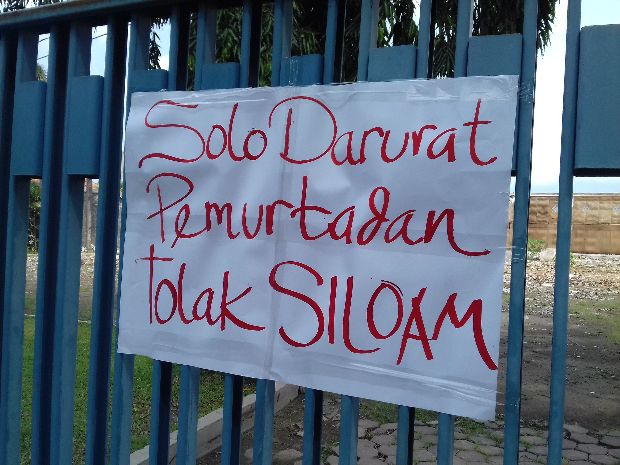 Solo Darurat
Pemurtadan
tolak SILOAM